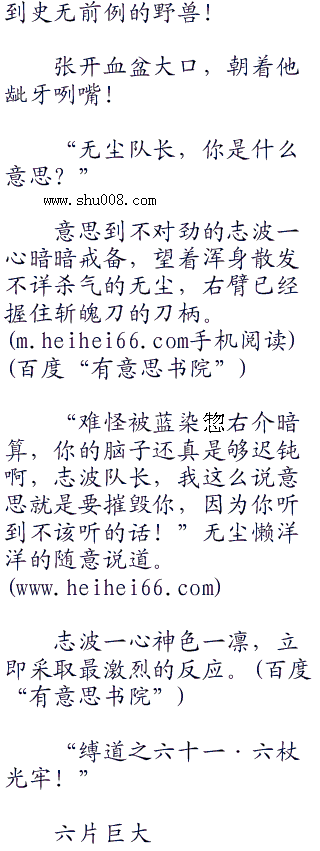 到史无前例的野兽！
张开血盆大口，朝着他
龇牙咧嘴！
“无尘队长，你是什么
意思？”
www.shu008.com
意思到不对劲的志波一
心暗暗戒备，望着浑身散发
不详杀气的无尘，右臂已经
握住斩魄刀的刀柄。
(m.heihei66.com手机阅读)
(百度“有意思书院”)
“难怪被蓝染惣右介暗
算，你的脑子还真是够迟钝
啊，志波队长，我这么说意
思就是要摧毁你，因为你听
到不该听的话！”无尘懒洋
洋的随意说道。
(www.heihei66.com)
志波一心神色一凛，立
即采取最激烈的反应。(百度
“有意思书院”)
“缚道之六十一·六杖
光牢！”
六片巨大